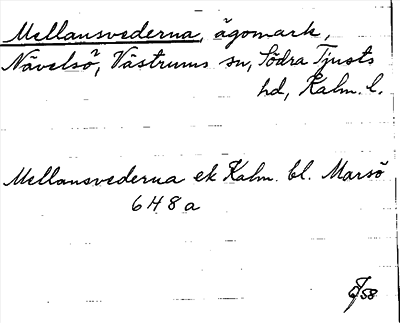 Mellansvederna, ägomark,
Nävelsö, Västrums sn, Södra Tjusts
hd, Kalm. l.
Mellansvederna ek Kalm. bl. Marsö
648a
58